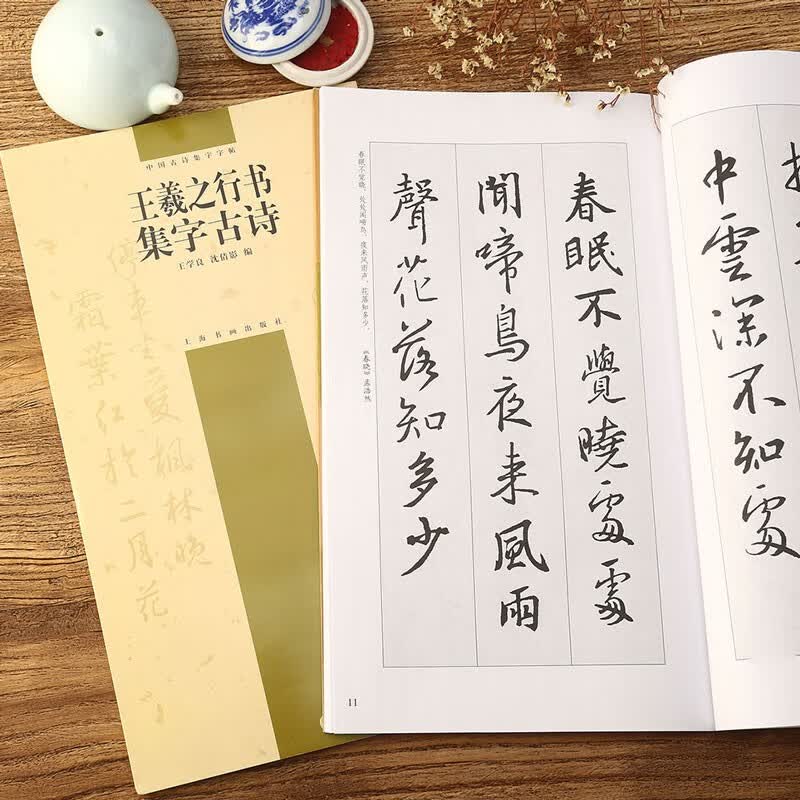 中国古诗集字字帖
王羲之行书
集字古诗
王学良 沈倩影 编
上海书画出版社
停车坐爱枫林晚
霜葉红於二月花
春眠不觉晓，处处闻啼鸟。夜来风雨声，花落知多少。
《春晓》孟浩然
春眠不覺曉處處
聞啼鳥夜来風雨
聲花落知多少
11
中雲深不知處